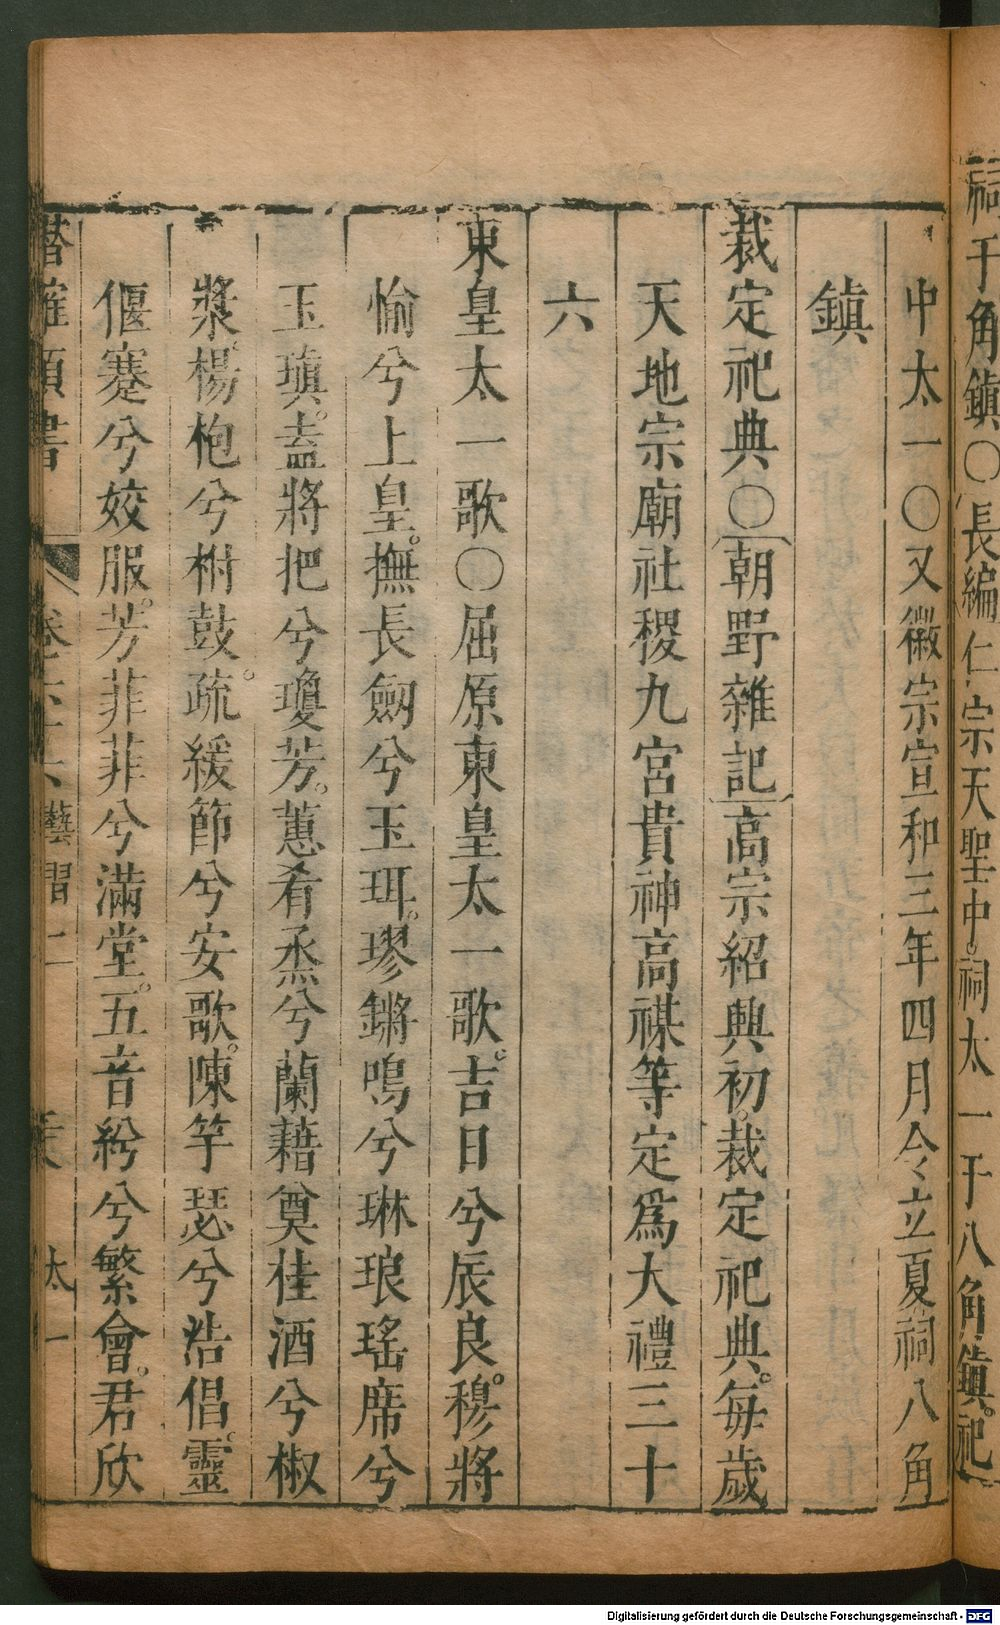 祠于角鎮〇長編仁宗天聖中祠太一于八角鎮祀
中太一〇又徽宗宣和三年四月令立夏祠八角
鎮
裁定祀典〇朝野雜記高宗紹興初裁定祀典每歲
天地宗廟社稷九宮貴神高禖等定爲大禮三十
六
東皇太一歌〇屈原東皇太一歌吉日兮辰良穆將
愉兮上皇撫長劒兮玉珥璆鏘鳴兮琳琅瑤席兮
玉瑱盍將把兮瓊芳蕙肴烝兮蘭藉奠桂酒兮椒
漿楊枹兮柎鼓疏緩節兮安歌陳竽瑟兮浩倡靈
偃蹇兮姣服芳菲菲兮滿堂五音紛兮繁會君欣
類書 卷 六 藝習二 太一
Digitalisierung gefördert durch die Deutsche Forschungsgemeinschaft - DFG